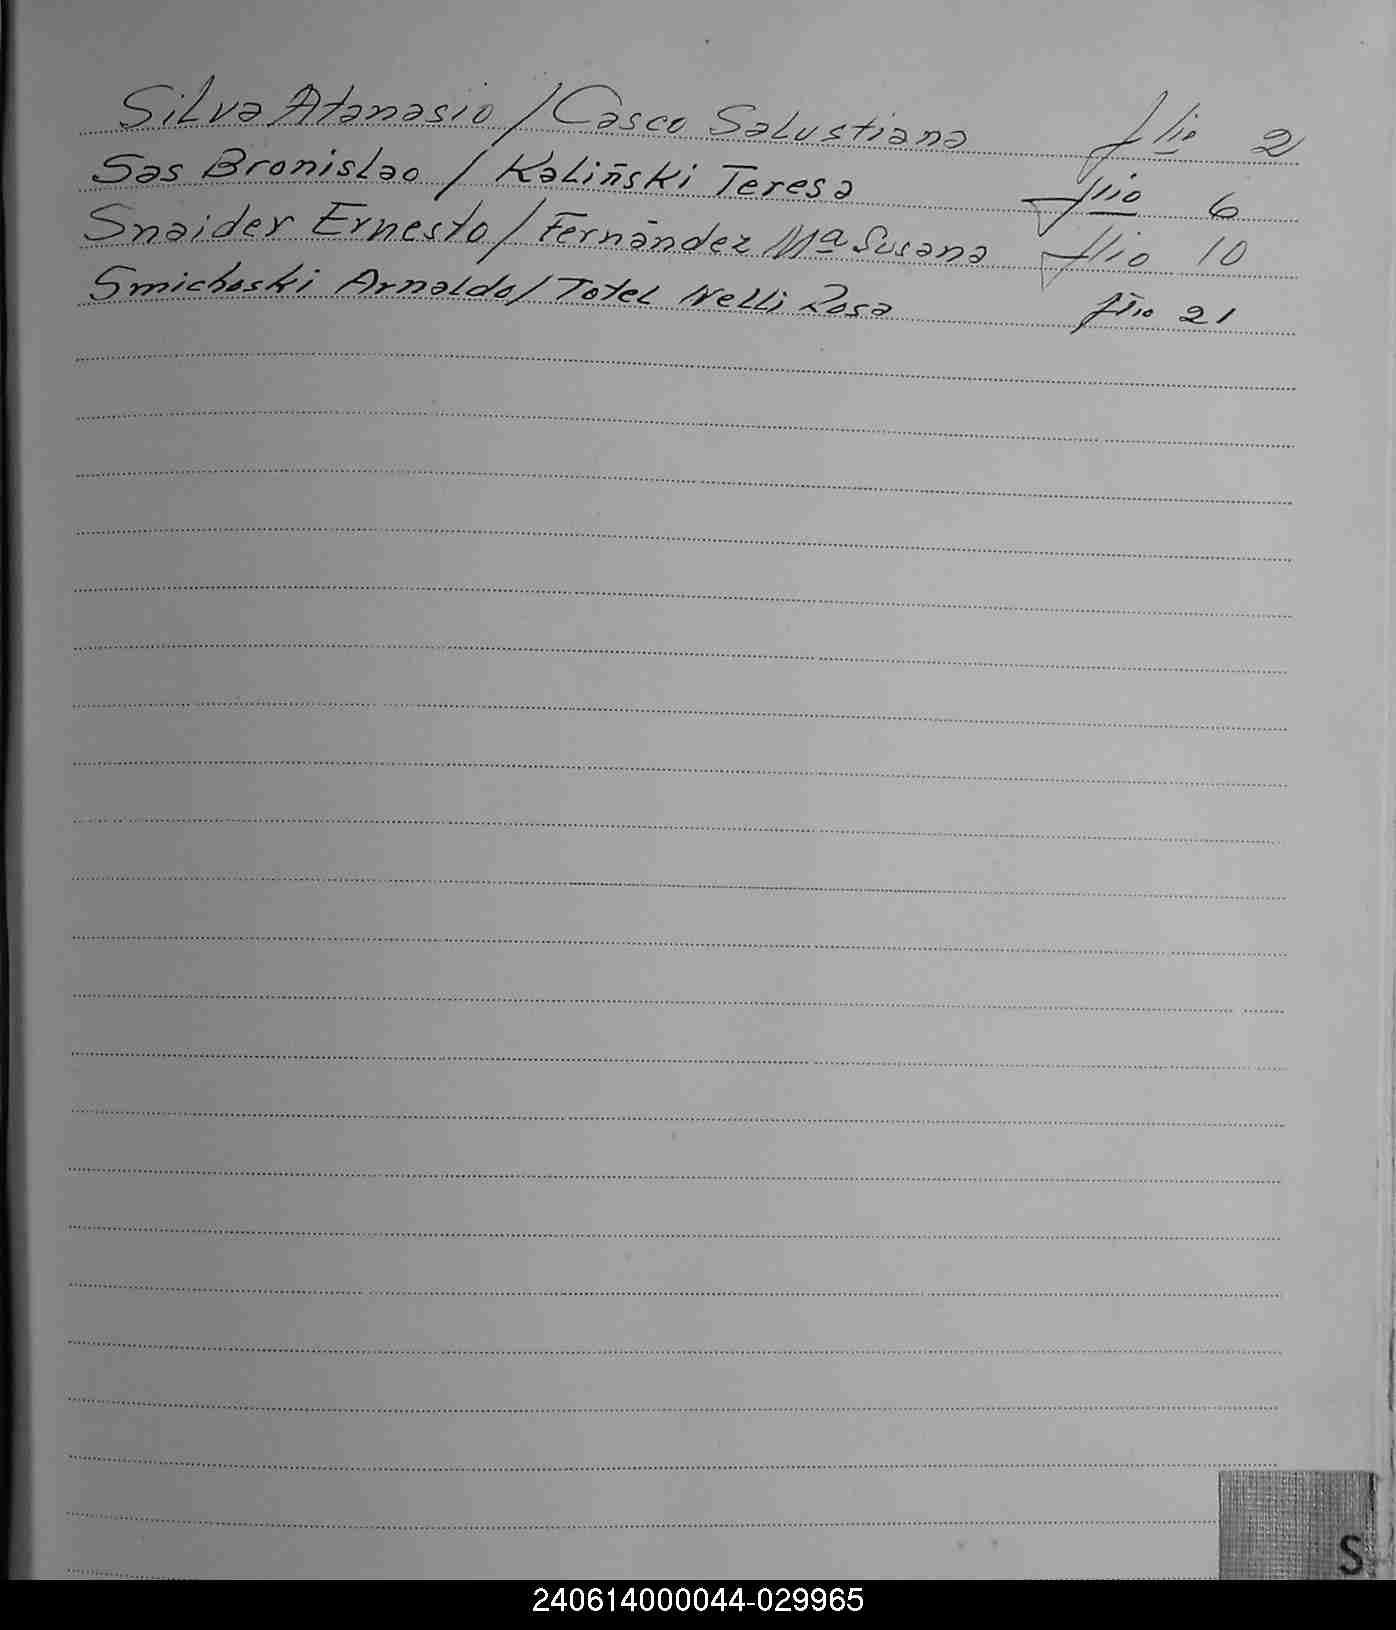 Silva Atanasio / Casco Salustiana flio 2
Sas Bronislao / Kaliński Teresa flio 6
Snaider Ernesto / Fernández Mª Susana flio 10
Smichoski Arnaldo / Totel Nelli Rosa flio 21
S
240614000044-029965